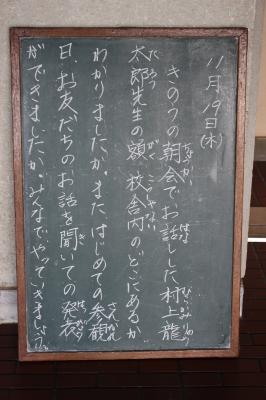 11月19日(木)
きのうの朝会でお話した村上龍
太郎先生の額、校舎内のどこにあるか
わかりましたか。また、はじめての参観
日、お友だちのお話を聞いての発表
ができましたか。みんなでやっていきましょう。